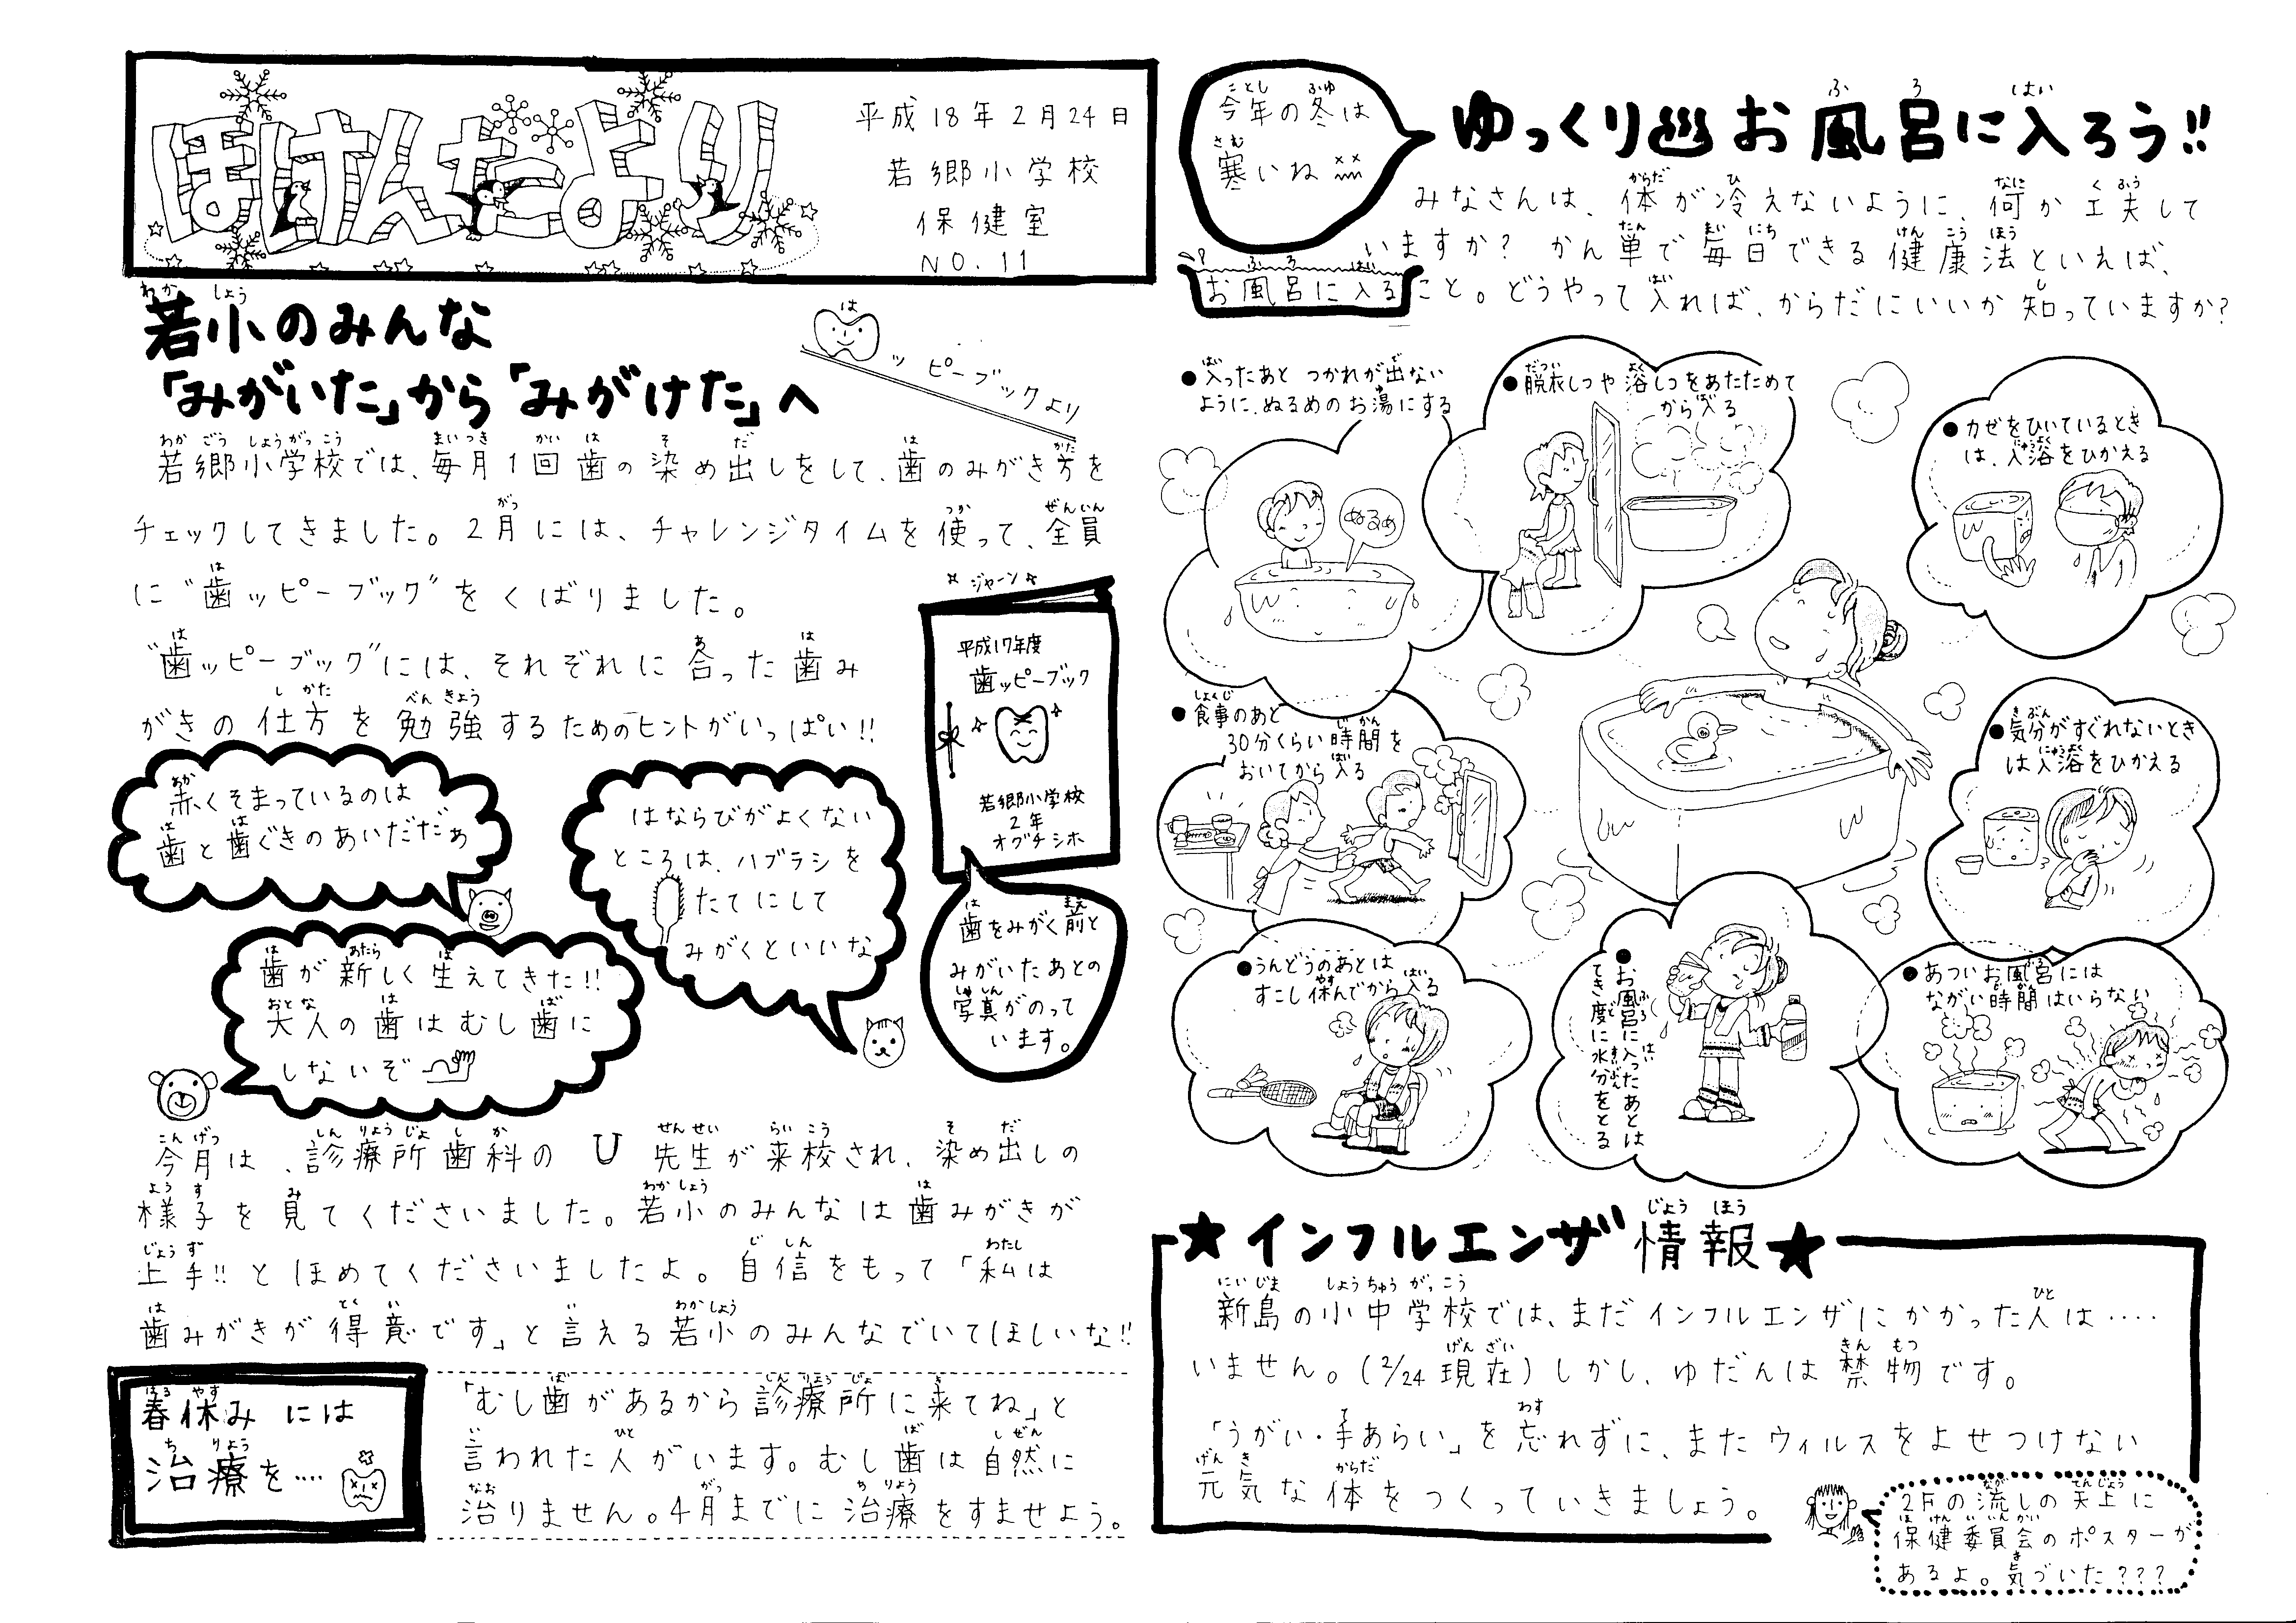 ほけんだより
平成18年2月24日
若郷小学校
保健室
NO.11
若小のみんな
「みがいた」から「みがけた」へ
歯ッピーブックより
若郷小学校では、毎月1回歯の染め出しをして、歯のみがき方を
チェックしてきました。2月には、チャレンジタイムを使って、全員
に"歯ッピーブック"をくばりました。
"歯ッピーブック"には、それぞれに合った歯み
がきの仕方を勉強するためのヒントがいっぱい!!
ジャーン
平成17年度
歯ッピーブック
若郷小学校
2年
オグチシホ
歯をみがく前と
みがいたあとの
写真がのって
います。
赤くそまっているのは
歯と歯ぐきのあいだだぁ
はならびがよくない
ところは、ハブラシを
たてにして
みがくといいな
歯が新しく生えてきた!!
大人の歯はむし歯に
しないぞ
今月は、診療所歯科のU先生が来校され、染め出しの
様子を見てくださいました。若小のみんなは歯みがきが
上手!!とほめてくださいましたよ。自信をもって「私は
歯みがきが得意です」と言える若小のみんなでいてほしいな!!
春休みには
治療を‥‥
「むし歯があるから診療所に来てね」と
言われた人がいます。むし歯は自然に
治りません。4月までに治療をすませよう。
今年の冬は
寒いね
ゆっくり♨お風呂に入ろう!!
みなさんは、体が冷えないように、何か工夫して
いますか? かん単で毎日できる健康法といえば、
お風呂に入ること。どうやって入れば、からだにいいか知っていますか?
●入ったあとつかれが出ない
ように、ぬるめのお湯にする
ぬるめ
●脱衣しつや浴しつをあたためて
から入る
●カゼをひいているとき
は、入浴をひかえる
●食事のあと
30分くらい時間を
おいてから入る
●気分がすぐれないとき
は入浴をひかえる
●うんどうのあとは
すこし休んでから入る
●お風呂に入ったあとは
てき度に水分をとる
●あついお風呂には
ながい時間はいらない
★インフルエンザ情報★
新島の小中学校では、まだインフルエンザにかかった人は‥‥
いません。(2/24現在)しかし、ゆだんは禁物です。
「うがい・手あらい」を忘れずに、またウィルスをよせつけない
元気な体をつくっていきましょう。
2Fの流しの天上に
保健委員会のポスターが
あるよ。気づいた???